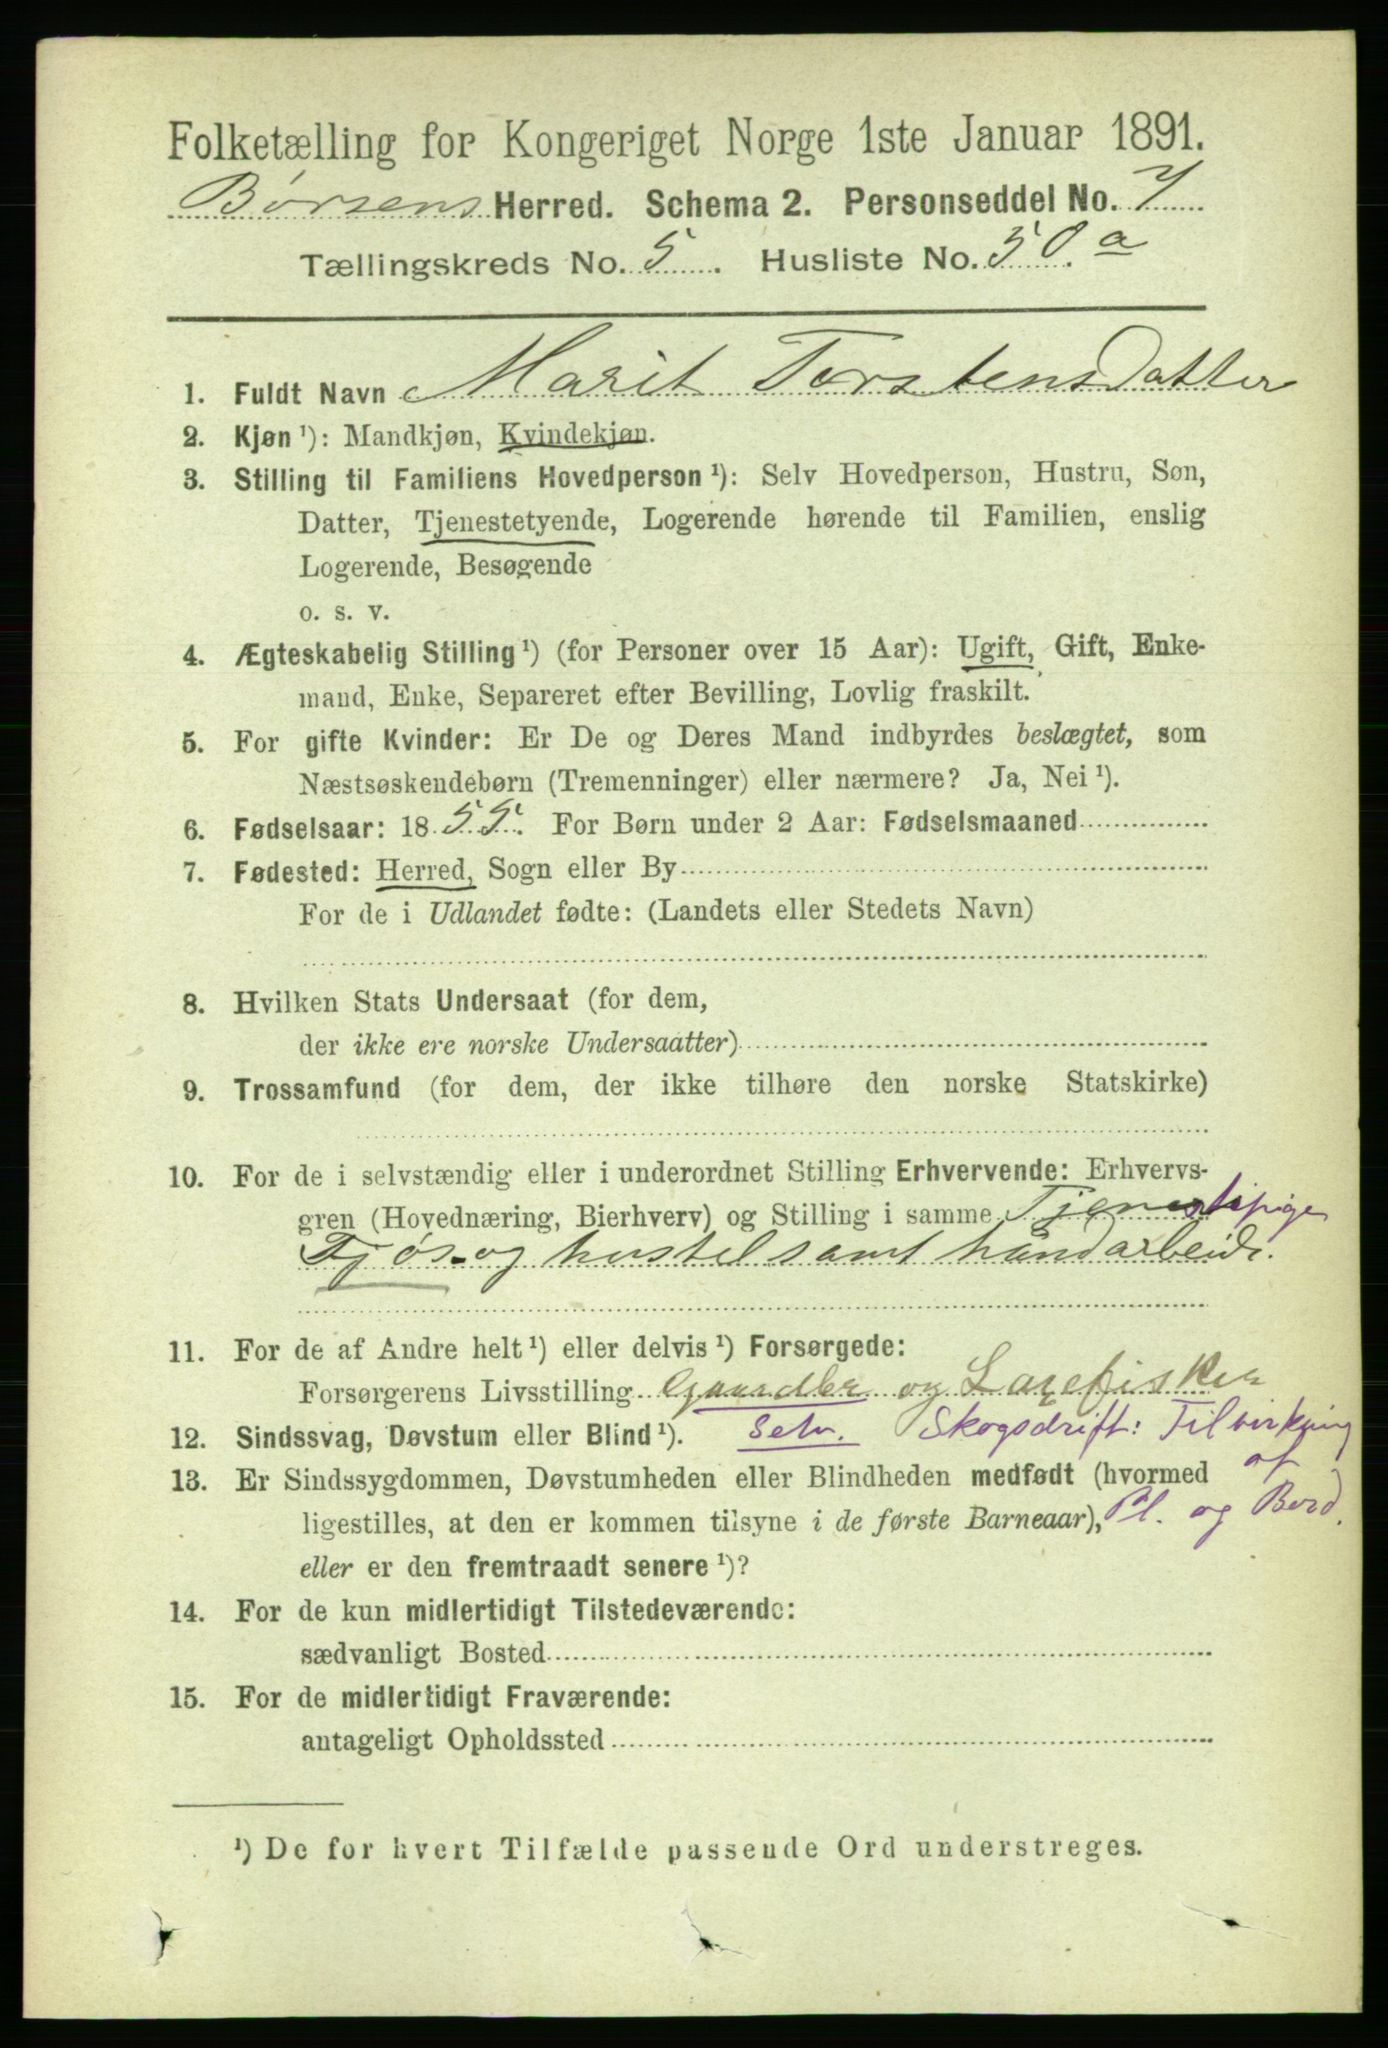 Folketælling for Kongeriget Norge 1ste Januar 1891.
Børsens Herred. Schema 2. Personseddel No. 7
Tællingskreds No. 5. Husliste No. 50.a
1. Fuldt Navn Marit Torstensdatter
2. Kjøn ¹): Mandkjøn, Kvindekjøn.
3. Stilling til Familiens Hovedperson ¹): Selv Hovedperson, Hustru, Søn,
Datter, Tjenestetyende, Logerende hørende til Familien, enslig
Logerende, Besøgende
o. s. v.
4. Ægteskabelig Stilling ¹) (for Personer over 15 Aar): Ugift, Gift, Enke-
mand, Enke, Separeret efter Bevilling, Lovlig fraskilt.
5. For gifte Kvinder: Er De og Deres Mand indbyrdes beslægtet, som
Næstsøskendebørn (Tremenninger) eller nærmere? Ja, Nei ¹).
6. Fødselsaar: 1855. For Børn under 2 Aar: Fødselsmaaned
7. Fødested: Herred, Sogn eller By
For de i Udlandet fødte: (Landets eller Stedets Navn)
8. Hvilken Stats Undersaat (for dem,
der ikke ere norske Undersaatter)
9. Trossamfund (for dem, der ikke tilhøre den norske Statskirke)
10. For de i selvstændig eller i underordnet Stilling Erhvervende: Erhvervs-
gren (Hovednæring, Bierhverv) og Stilling i samme Tjenestepige
Fjøs- og hustel samt håndarbeide.
11. For de af Andre helt ¹) eller delvis ¹) Forsørgede:
Forsørgerens Livsstilling Gaardbr og Laxefisker
12. Sindssvag, Døvstum eller Blind ¹). Selv. Skogsdrift: Tilvirkning
13. Er Sindssygdommen, Døvstumheden eller Blindheden medfødt (hvormed af
ligestilles, at den er kommen tilsyne i de første Barneaar), Pl. og Bord.
eller er den fremtraadt senere ¹)?
14. For de kun midlertidigt Tilstedeværende:
sædvanligt Bosted
15. For de midlertidigt Fraværende:
antageligt Opholdssted
¹) De for hvert Tilfælde passende Ord understreges.